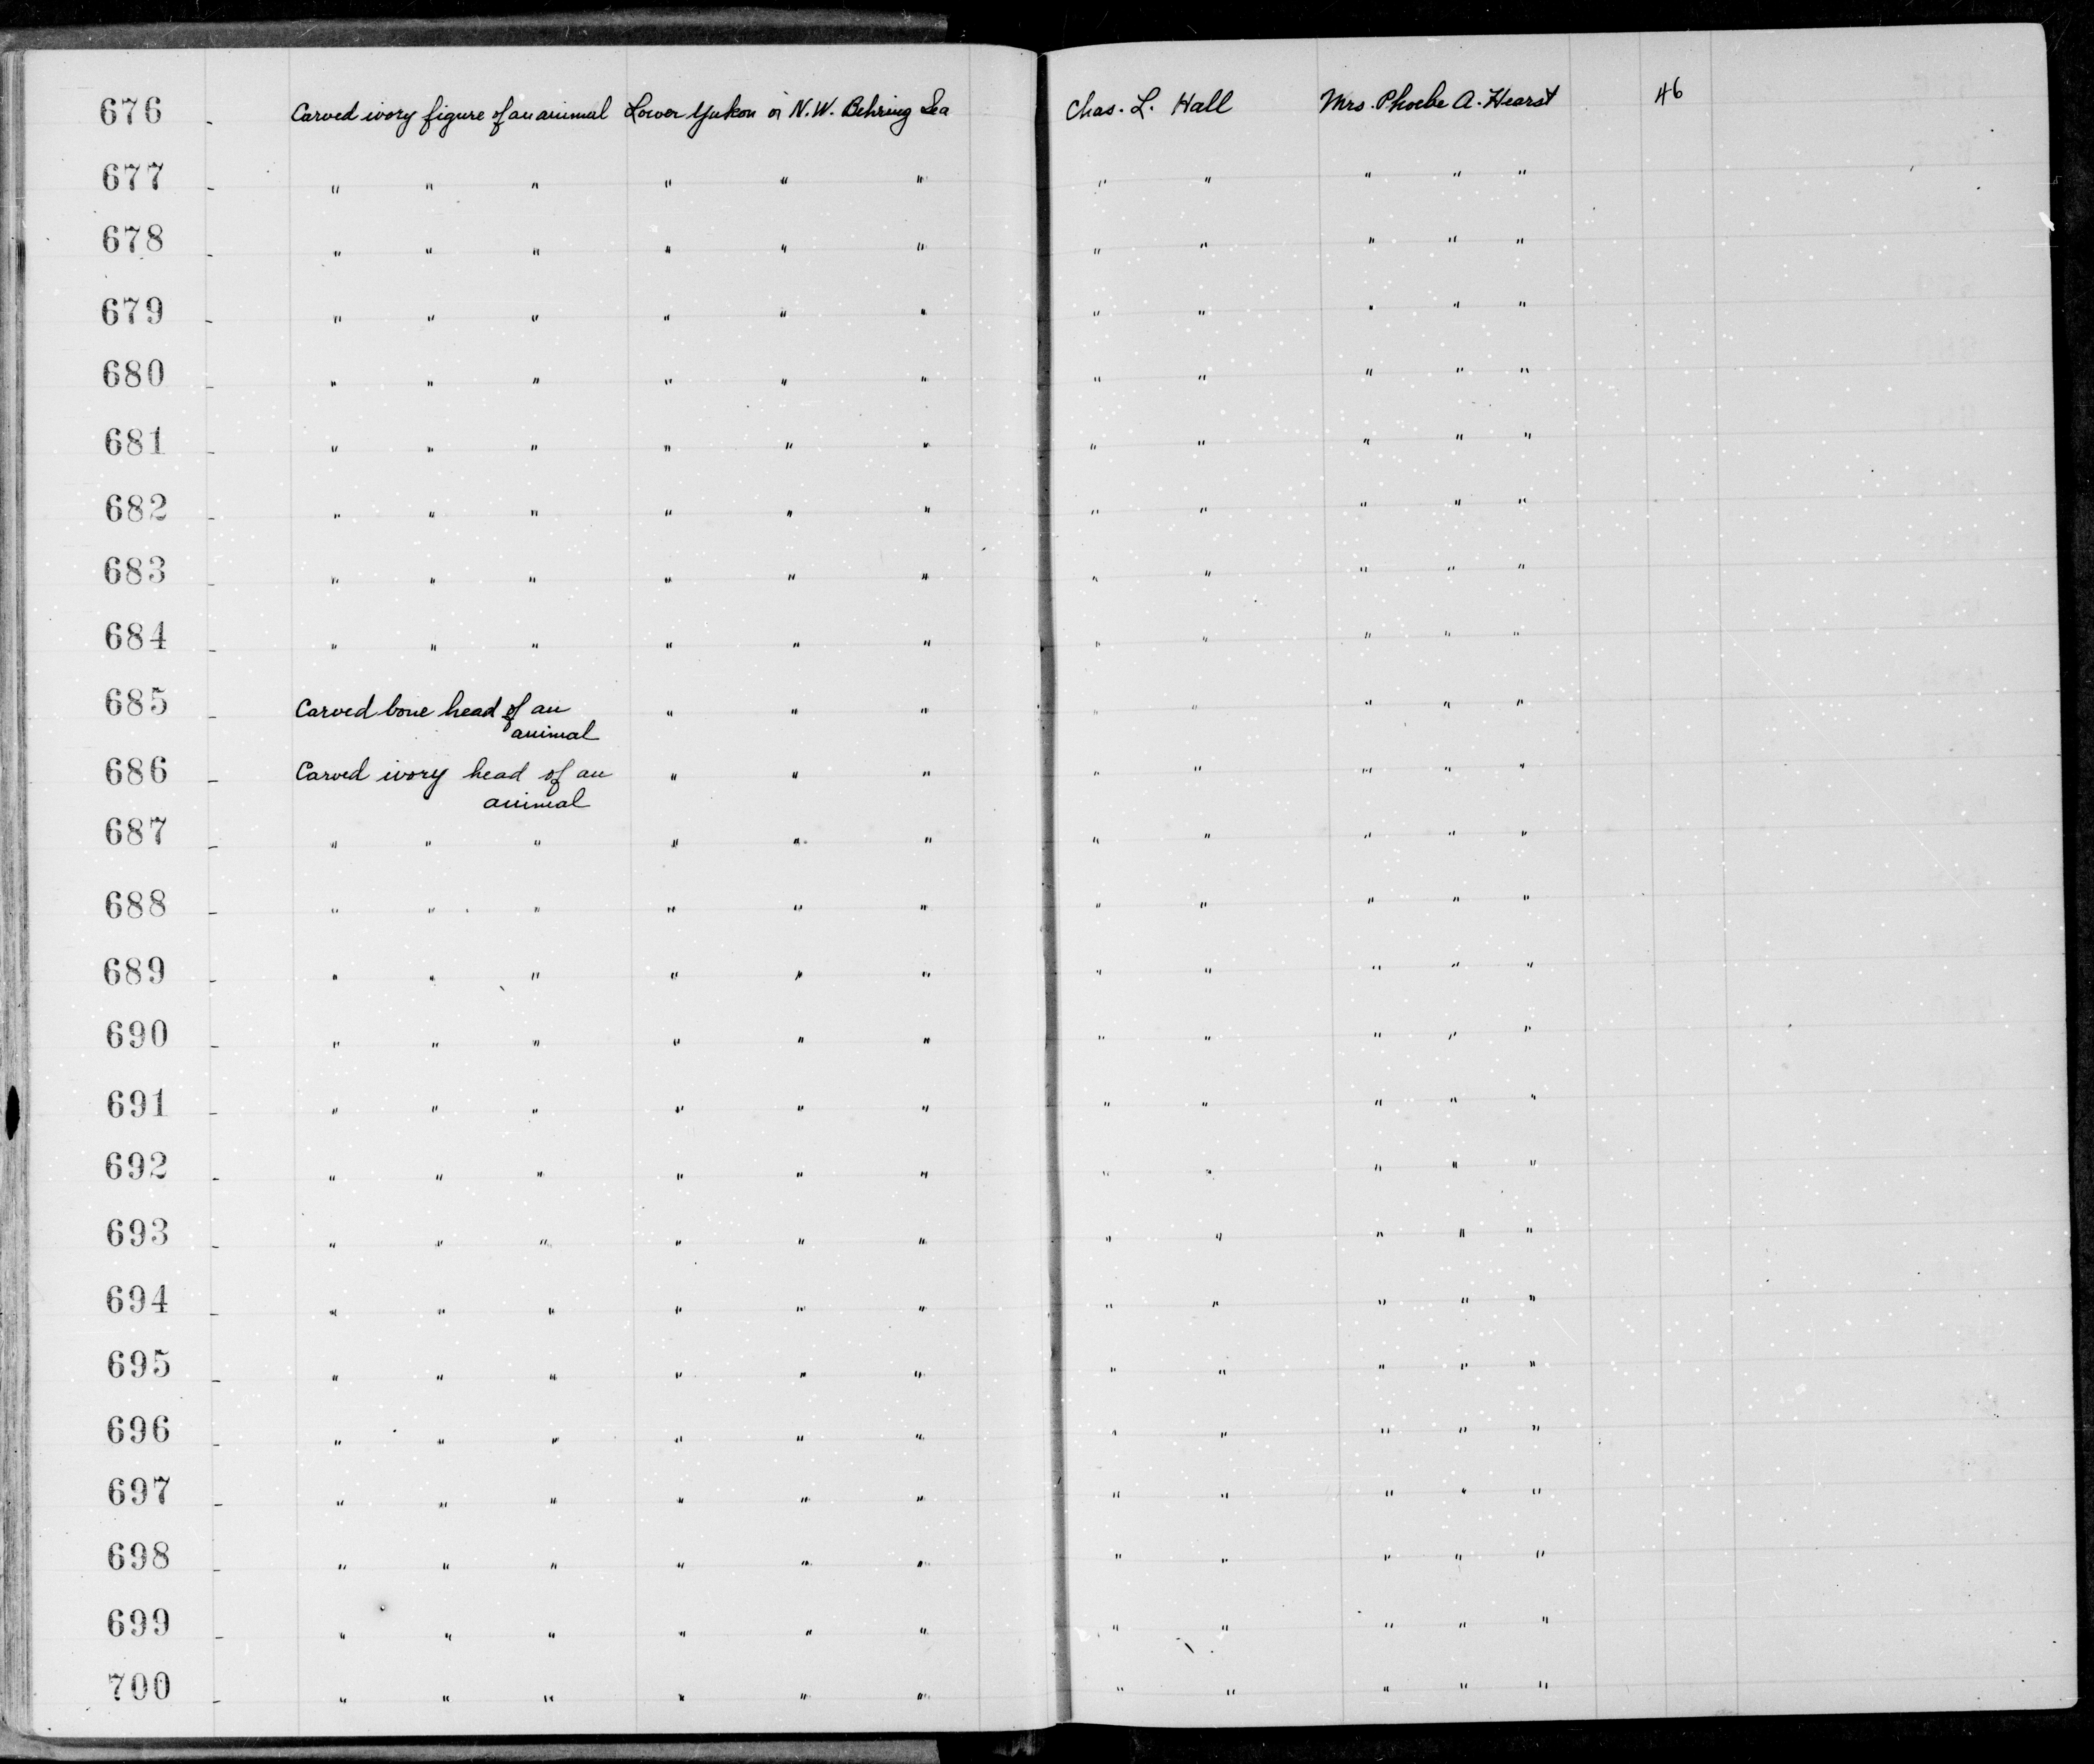 676 - Carved ivory figure of an animal Lower Yukon or N.W. Behring Sea Chas. L. Hall Mrs. Phoebe A. Hearst 46
677 - " " " " " " " " " " "
678 - " " " " " " " " " " "
679 - " " " " " " " " " " "
680 - " " " " " " " " " " "
681 - " " " " " " " " " " "
682 - " " " " " " " " " " "
683 - " " " " " " " " " " "
684 - " " " " " " " " " " "
685 - Carved bone head of an " " " " " " " "
animal
686 - Carved ivory head of an " " " " " " " "
animal
687 - " " " " " " " " " " "
688 - " " " " " " " " " " "
689 - " " " " " " " " " " "
690 - " " " " " " " " " " "
691 - " " " " " " " " " " "
692 - " " " " " " " " " " "
693 - " " " " " " " " " " "
694 - " " " " " " " " " " "
695 - " " " " " " " " " " "
696 - " " " " " " " " " " "
697 - " " " " " " " " " " "
698 - " " " " " " " " " " "
699 - " " " " " " " " " " "
700 - " " " " " " " " " " "